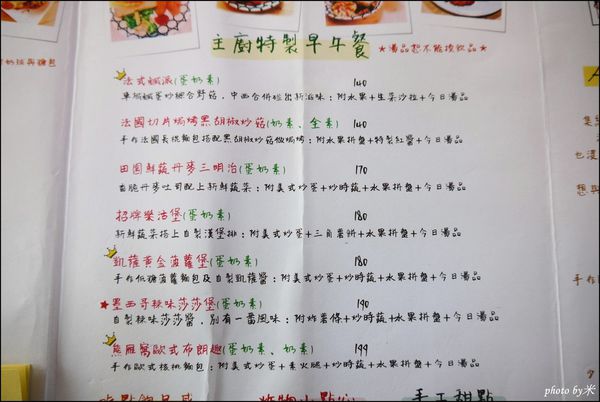 主廚特製早午餐
★湯品恕不能換飲品★
法式鹹派(蛋奶素) 140
車城鹹蛋炒綜合野菇，中西合併碰出新滋味：附水果+生菜沙拉+今日湯品
法國切片焗烤黑胡椒炒菇(奶素、全素) 140
手作法國長棍麵包搭配黑胡椒炒菇做焗烤：附水果拼盤+特製紅醬+今日湯品
田園鮮蔬丹麥三明治(蛋奶素) 170
香脆丹麥吐司配上新鮮蔬菜：附美式炒蛋+炒時蔬+水果拼盤+今日湯品
招牌樂活堡(蛋奶素) 180
新鮮蔬菜搭上自製漢堡排：附美式炒蛋+三角薯餅+水果拼盤+今日湯品
凱薩黃金菠蘿堡(蛋奶素) 180
手作低糖菠蘿麵包及自製凱薩醬：附美式炒蛋+炒時蔬+水果拼盤+今日湯品
★墨西哥辣味莎莎堡(蛋奶素) 190
自製辣味莎莎醬，別有一番風味：附炸薯條+炒時蔬+水果拼盤+今日湯品
熊雁窩歐式布朗趣(蛋奶素、奶素) 199
手作歐式核桃麵包：附美式炒蛋+素火腿+炒時蔬+水果拼盤+今日湯品
手工甜點
photo by 米